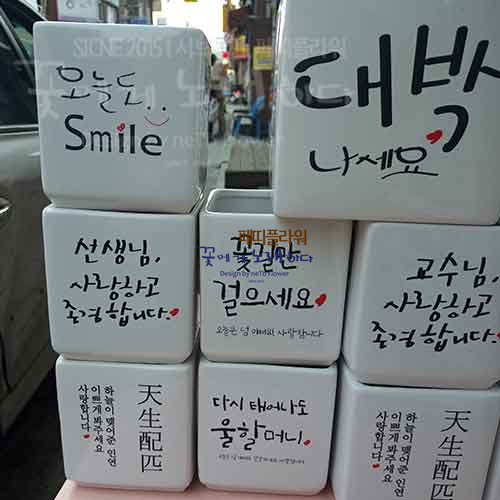 SICNE2015
오늘도..
Smile
대박
나세요
선생님,
사랑하고
존경합니다.
페띠플라워
Design by neTo flower
꽃길만
걸으세요
교수님,
사랑하고
존경합니다.
天生配匹
하늘이 맺어준 인연
이쁘게 봐주세요
사랑합니다
다시 태어나도
울할머니.
天生配匹
하늘이 맺어준 인연
이쁘게 봐주세요
사랑합니다